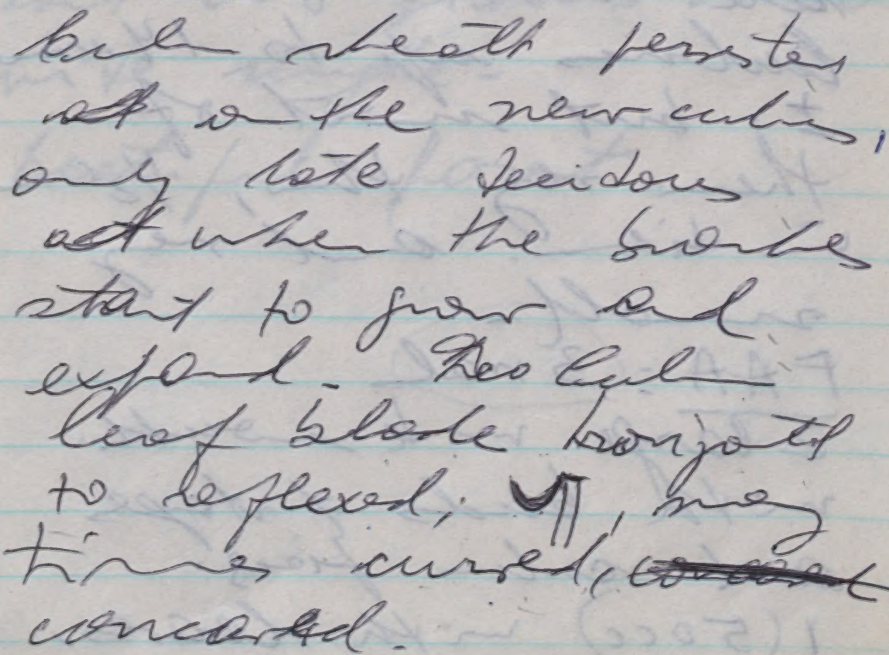 Culm sheath persistent
at on the new culms,
only late deciduous
at when the branches
start to grow and
expand. The culm
leaf blade horizontal
to reflexed; , many
times curved,
concaved.